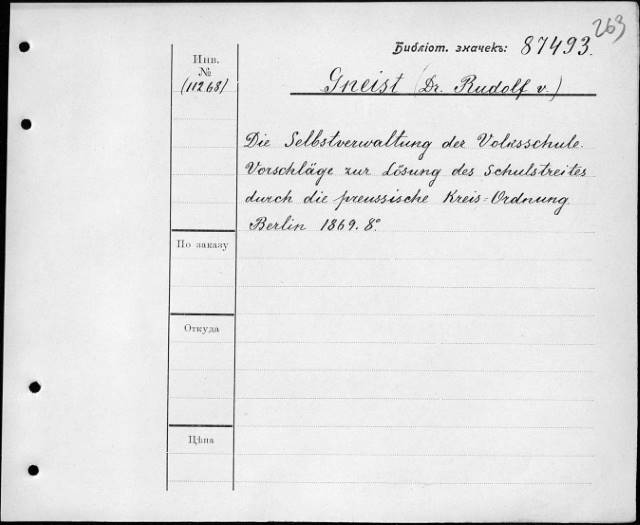 263
Библіот. значекъ: 87493.
Инв.
№
(11268)
Gneist (Dr. Rudolf v.)
Die Selbstverwaltung der Volksschule.
Vorschläge zur Lösung des Schulstreites
durch die preussische Kreis=Ordnung
Berlin 1869. 8°.
По заказу
Откуда
Цѣна